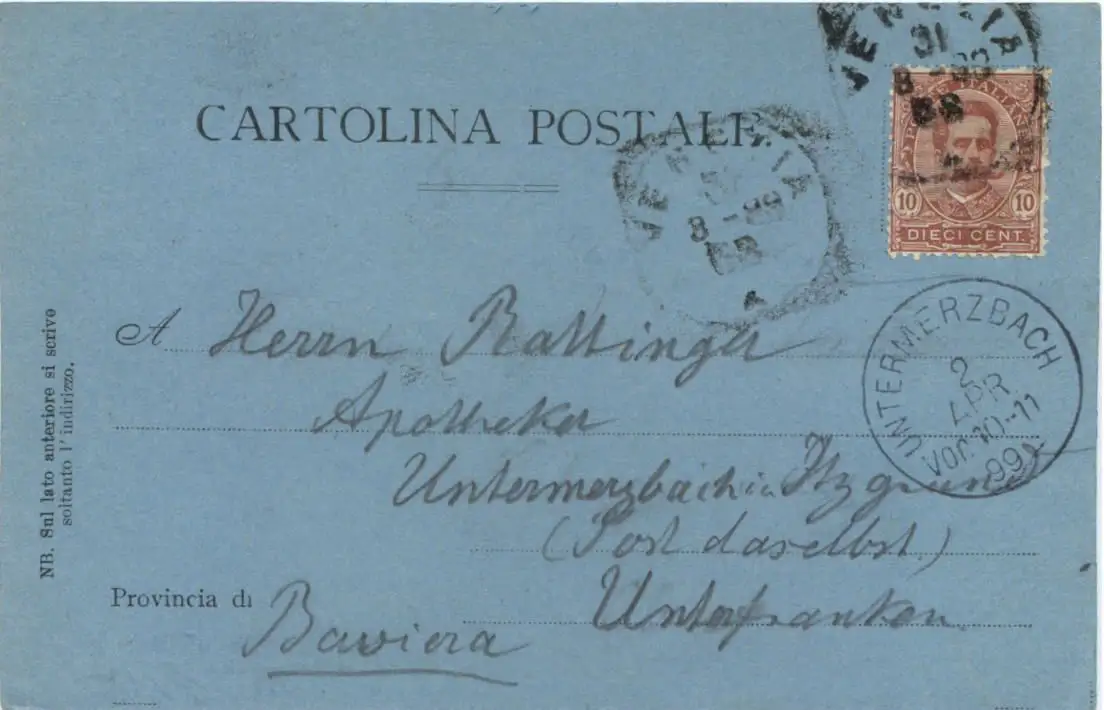 VENEZIA
31
3 - 99
8S
POSTE ITALIANE
10 10
DIECI CENT.
CARTOLINA POSTALE.
VENEZIA
3 - 99
8S
UNTERMERZBACH
2
APR
Vor. 10-11
99
A Herrn Rattinger
Apotheker
Untermerzbach in Itzgrund
(Post daselbst.)
Provincia di Baviera
Unterfranken.
NB. Sul lato anteriore si scrive
soltanto l'indirizzo.